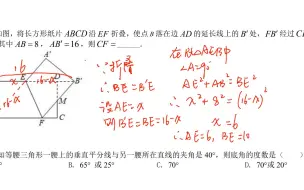 图，将长方形纸片ABCD沿EF折叠，使点B落在边AD的延长线上的B'处，FB'经过C
其中AB=8，AB'=16，则CF=______．
A'
16
16-x
E
D
B'
C
M
F
∵折叠
∴BE=B'E
设AE=x
则B'E=BE=16-x
在Rt△AEB中
∠A=90°
AE²+AB²=BE²
∴x²+8²=(16-x)²
x=6
∴AE=6，BE=10
如等腰三角形一腰上的垂直平分线与另一腰所在直线的夹角是40°，则底角的度数是（
B．65°或25°
C．70°
D．70°或20°